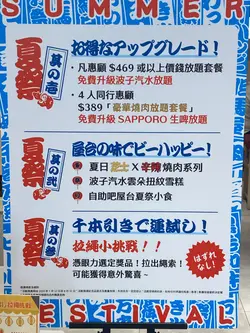 SUMMER
夏祭
其の壱
お得なアップグレード！
・凡惠顧 $469 或以上價錢放題套餐
免費升級波子汽水放題
・4人同行惠顧
$389「豪華燒肉放題套餐」
免費升級 SAPPORO 生啤放題
夏祭
其の弐
屋台の味でビーハッピー！
夏日芝士 X 辛辣燒肉系列
波子汽水雲朵扭紋雪糕
自助吧屋台夏祭小食
夏祭
其の参
千本引きで運試し！
拉繩小挑戰！！
憑眼力選定獎品！拉出繩索！
可能獲得意外驚喜~
はずれなし！
FESTIVAL